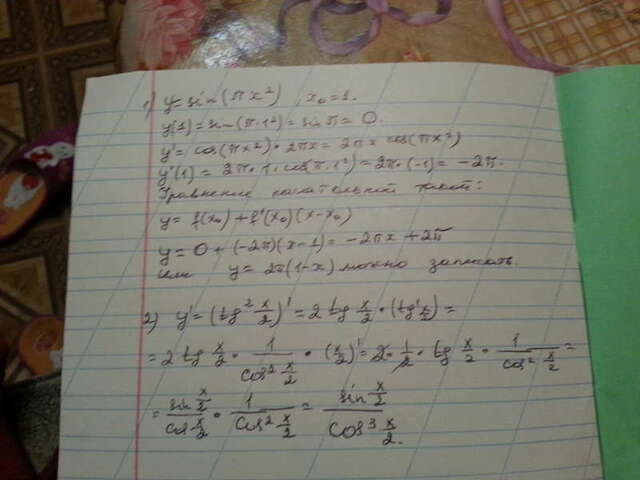 1) y = sin(πx²) x₀ = 1.
y(1) = sin(π·1²) = sin π = 0.
y' = cos(πx²)·2πx = 2πx cos(πx²)
y'(1) = 2π·1·cos(π·1²) = 2π·(-1) = -2π.
Уравнение касательной такой:
y = f(x₀) + f'(x₀)(x-x₀)
y = 0 + (-2π)(x-1) = -2πx + 2π
или y = 2π(1-x) можно записать.
2) y' = (tg² x/2)' = 2 tg x/2 · (tg x/2)' =
= 2 tg x/2 · 1/cos² x/2 · (x/2)' = 2 · 1/2 · tg x/2 · 1/cos² x/2 =
= sin x/2 / cos x/2 · 1/cos² x/2 = sin x/2 / cos³ x/2.